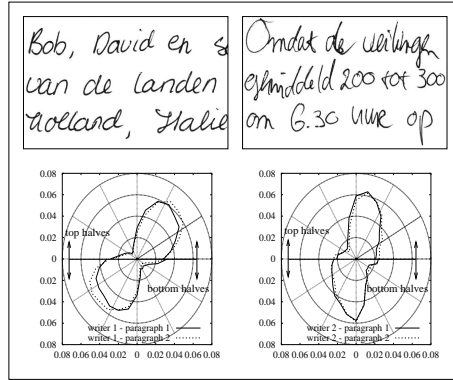 Bob, David en s
van de landen
Holland, Italie
Omdat de veilingen
gemiddeld 200 tot 300
om 6.30 uur op
0.08
0.06
0.04
0.02
0
0.02
0.04
0.06
0.08
top halves
bottom halves
writer 1 - paragraph 1
writer 1 - paragraph 2
0.08 0.06 0.04 0.02 0 0.02 0.04 0.06 0.08
0.08
0.06
0.04
0.02
0
0.02
0.04
0.06
0.08
top halves
bottom halves
writer 2 - paragraph 1
writer 2 - paragraph 2
0.08 0.06 0.04 0.02 0 0.02 0.04 0.06 0.08